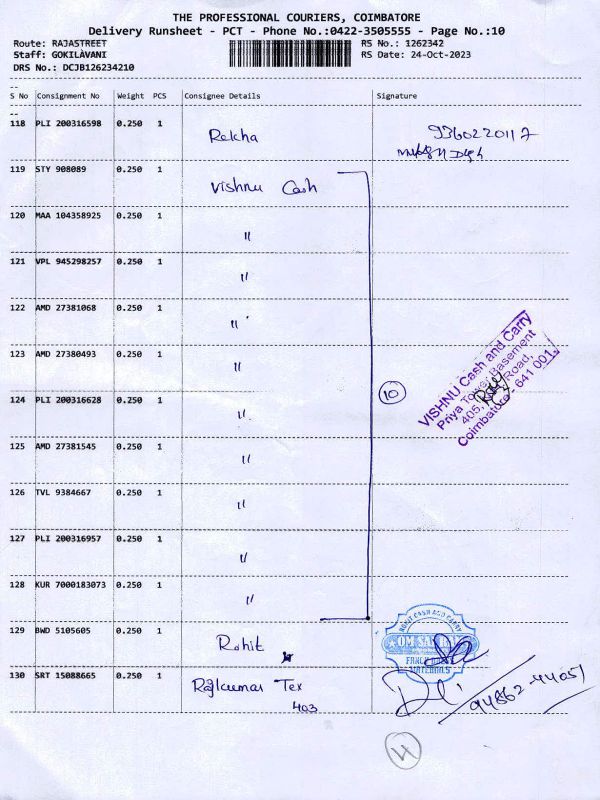 THE PROFESSIONAL COURIERS, COIMBATORE
Delivery Runsheet - PCT - Phone No.:0422-3505555 - Page No.:10
Route: RAJASTREET
RS No.: 1262342
Staff: GOKILAVANI
RS Date: 24-Oct-2023
DRS No.: DCJB126234210
S No Consignment No Weight PCS Consignee Details Signature
118 PLI 200316598 0.250 1 Rekha 9360220117
119 STY 908089 0.250 1 Vishnu Cash
120 MAA 104358925 0.250 1 "
121 VPL 945298257 0.250 1 "
122 AMD 27381068 0.250 1 "
123 AMD 27380493 0.250 1 "
124 PLI 200316628 0.250 1 "
125 AMD 27381545 0.250 1 "
126 TVL 9384667 0.250 1 "
127 PLI 200316957 0.250 1 "
128 KUR 7000183073 0.250 1 "
10
VISHNU Cash and Carry
Priya Tower Basement
405, Road,
Coimbatore - 641 001.
129 BWD 5105605 0.250 1 Rohit
ROHIT CASH AND CARRY
OM
MATERIALS
130 SRT 15088665 0.250 1 Rajkumar Tex
403
94862-44051
4